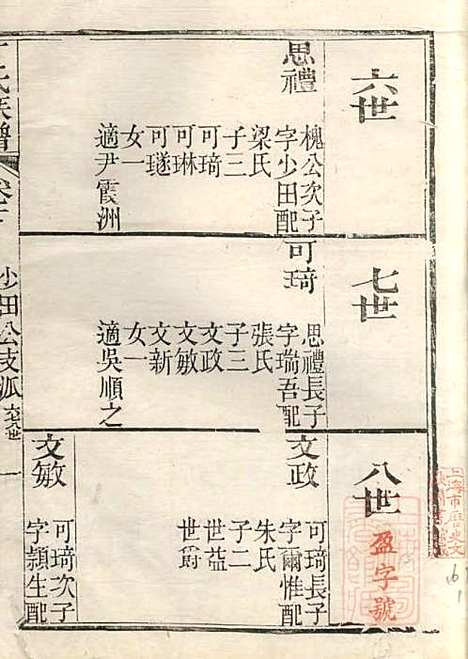 六世
思禮
槐公次子
字少田配
梁氏
子三
可琦
可琳
可璲
女一
適尹霞洲
七世
可琦
思禮長子
字瑞吾配
張氏
子三
文政
文敏
文新
女一
適吳順之
八世
文政
可琦長子
字爾惟配
朱氏
子二
世益
世爵
文敏
可琦次子
字頴生配
氏族譜
少田公支派
盈字號